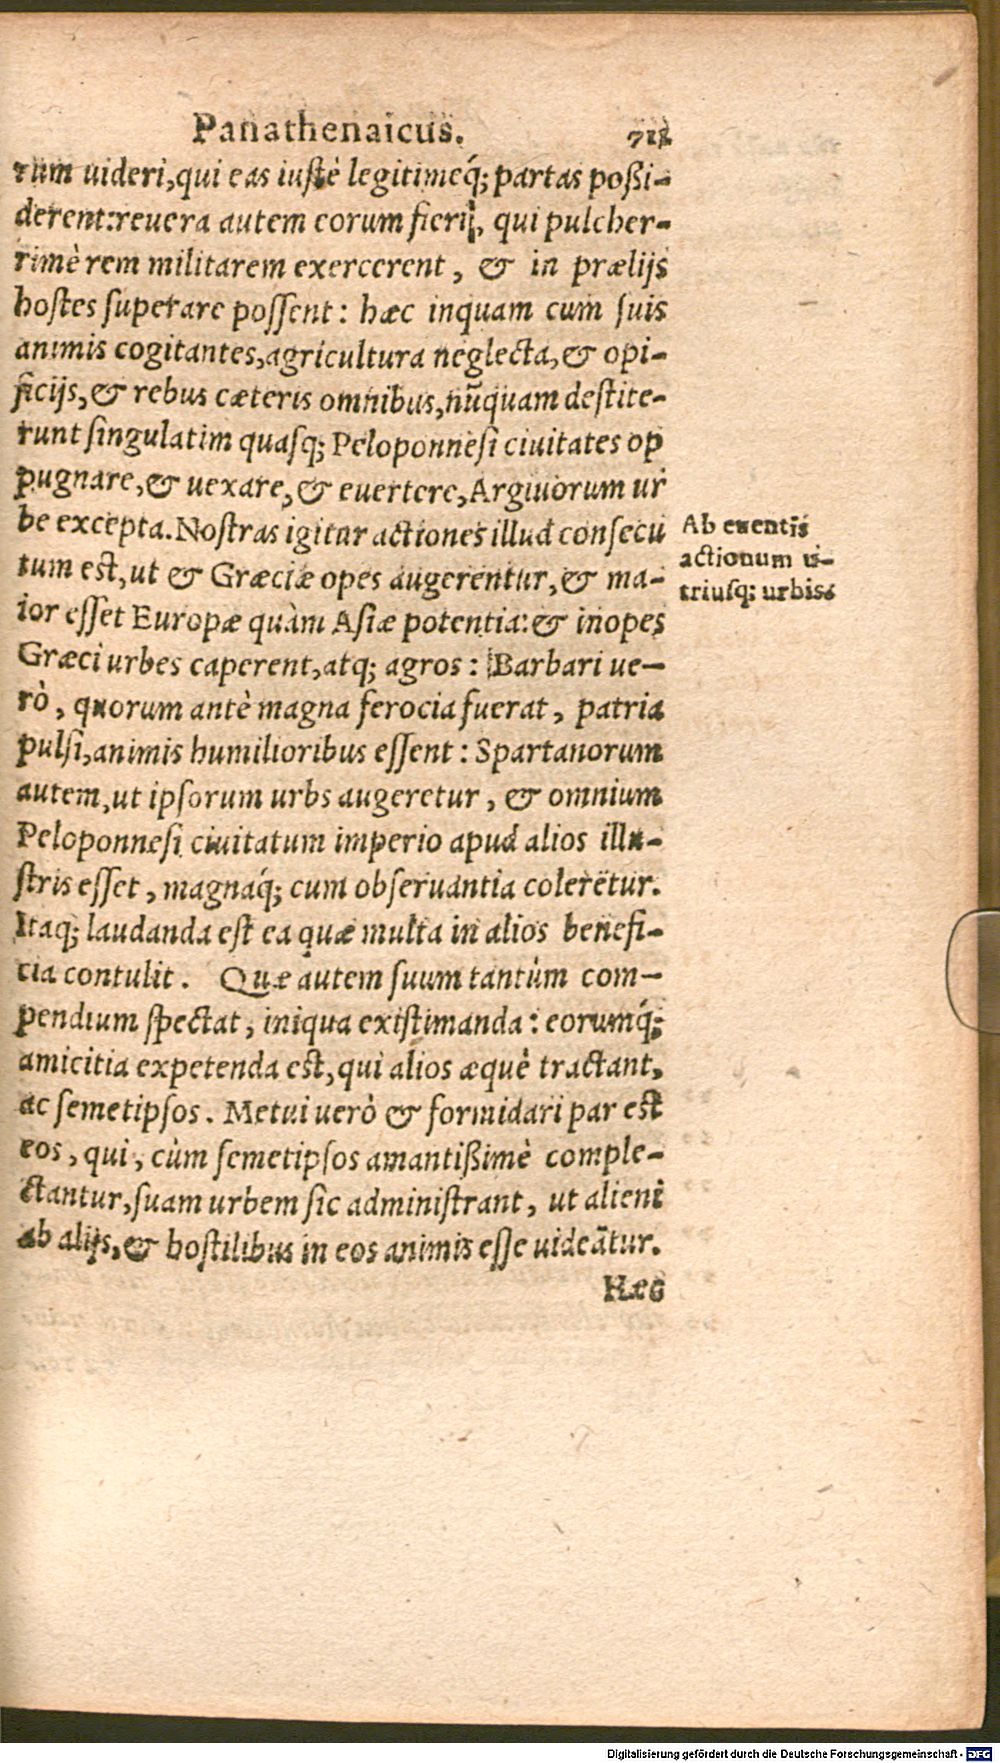 Panathenaicus. 711
rum uideri, qui eas iustè legitimeq́; partas poßi-
derent: reuera autem eorum fieri, qui pulcher-
rimè rem militarem exercerent, & in prælijs
hostes superare possent: hæc inquam cum suis
animis cogitantes, agricultura neglecta, & opi-
ficijs, & rebus cæteris omnibus, nũquam destite-
runt singulatim quasq; Peloponnesi ciuitates op
pugnare, & uexare, & euertere, Argiuorum ur
be excepta. Nostras igitur actiones illud consecu
tum est, ut & Græciæ opes augerentur, & ma-
ior esset Europæ quàm Asiæ potentia: & inopes
Græci urbes caperent, atq; agros: Barbari ue-
rò, quorum antè magna ferocia fuerat, patria
pulsi, animis humilioribus essent: Spartanorum
autem, ut ipsorum urbs augeretur, & omnium
Peloponnesi ciuitatum imperio apud alios illu-
stris esset, magnaq́; cum obseruantia coleretur.
Itaq; laudanda est ea quæ multa in alios benefi-
cia contulit. Quæ autem suum tantùm com-
pendium spectat, iniqua existimanda: eorumq́;
amicitia expetenda est, qui alios æquè tractant,
ac semetipsos. Metui uerò & formidari par est
eos, qui, cùm semetipsos amantißimè comple-
ctantur, suam urbem sic administrant, ut alieni
ab alijs, & hostilibus in eos animis esse uideãtur.
Hæc
Ab euentis
actionum u-
triusq; urbis
Digitalisierung gefördert durch die Deutsche Forschungsgemeinschaft - DFG